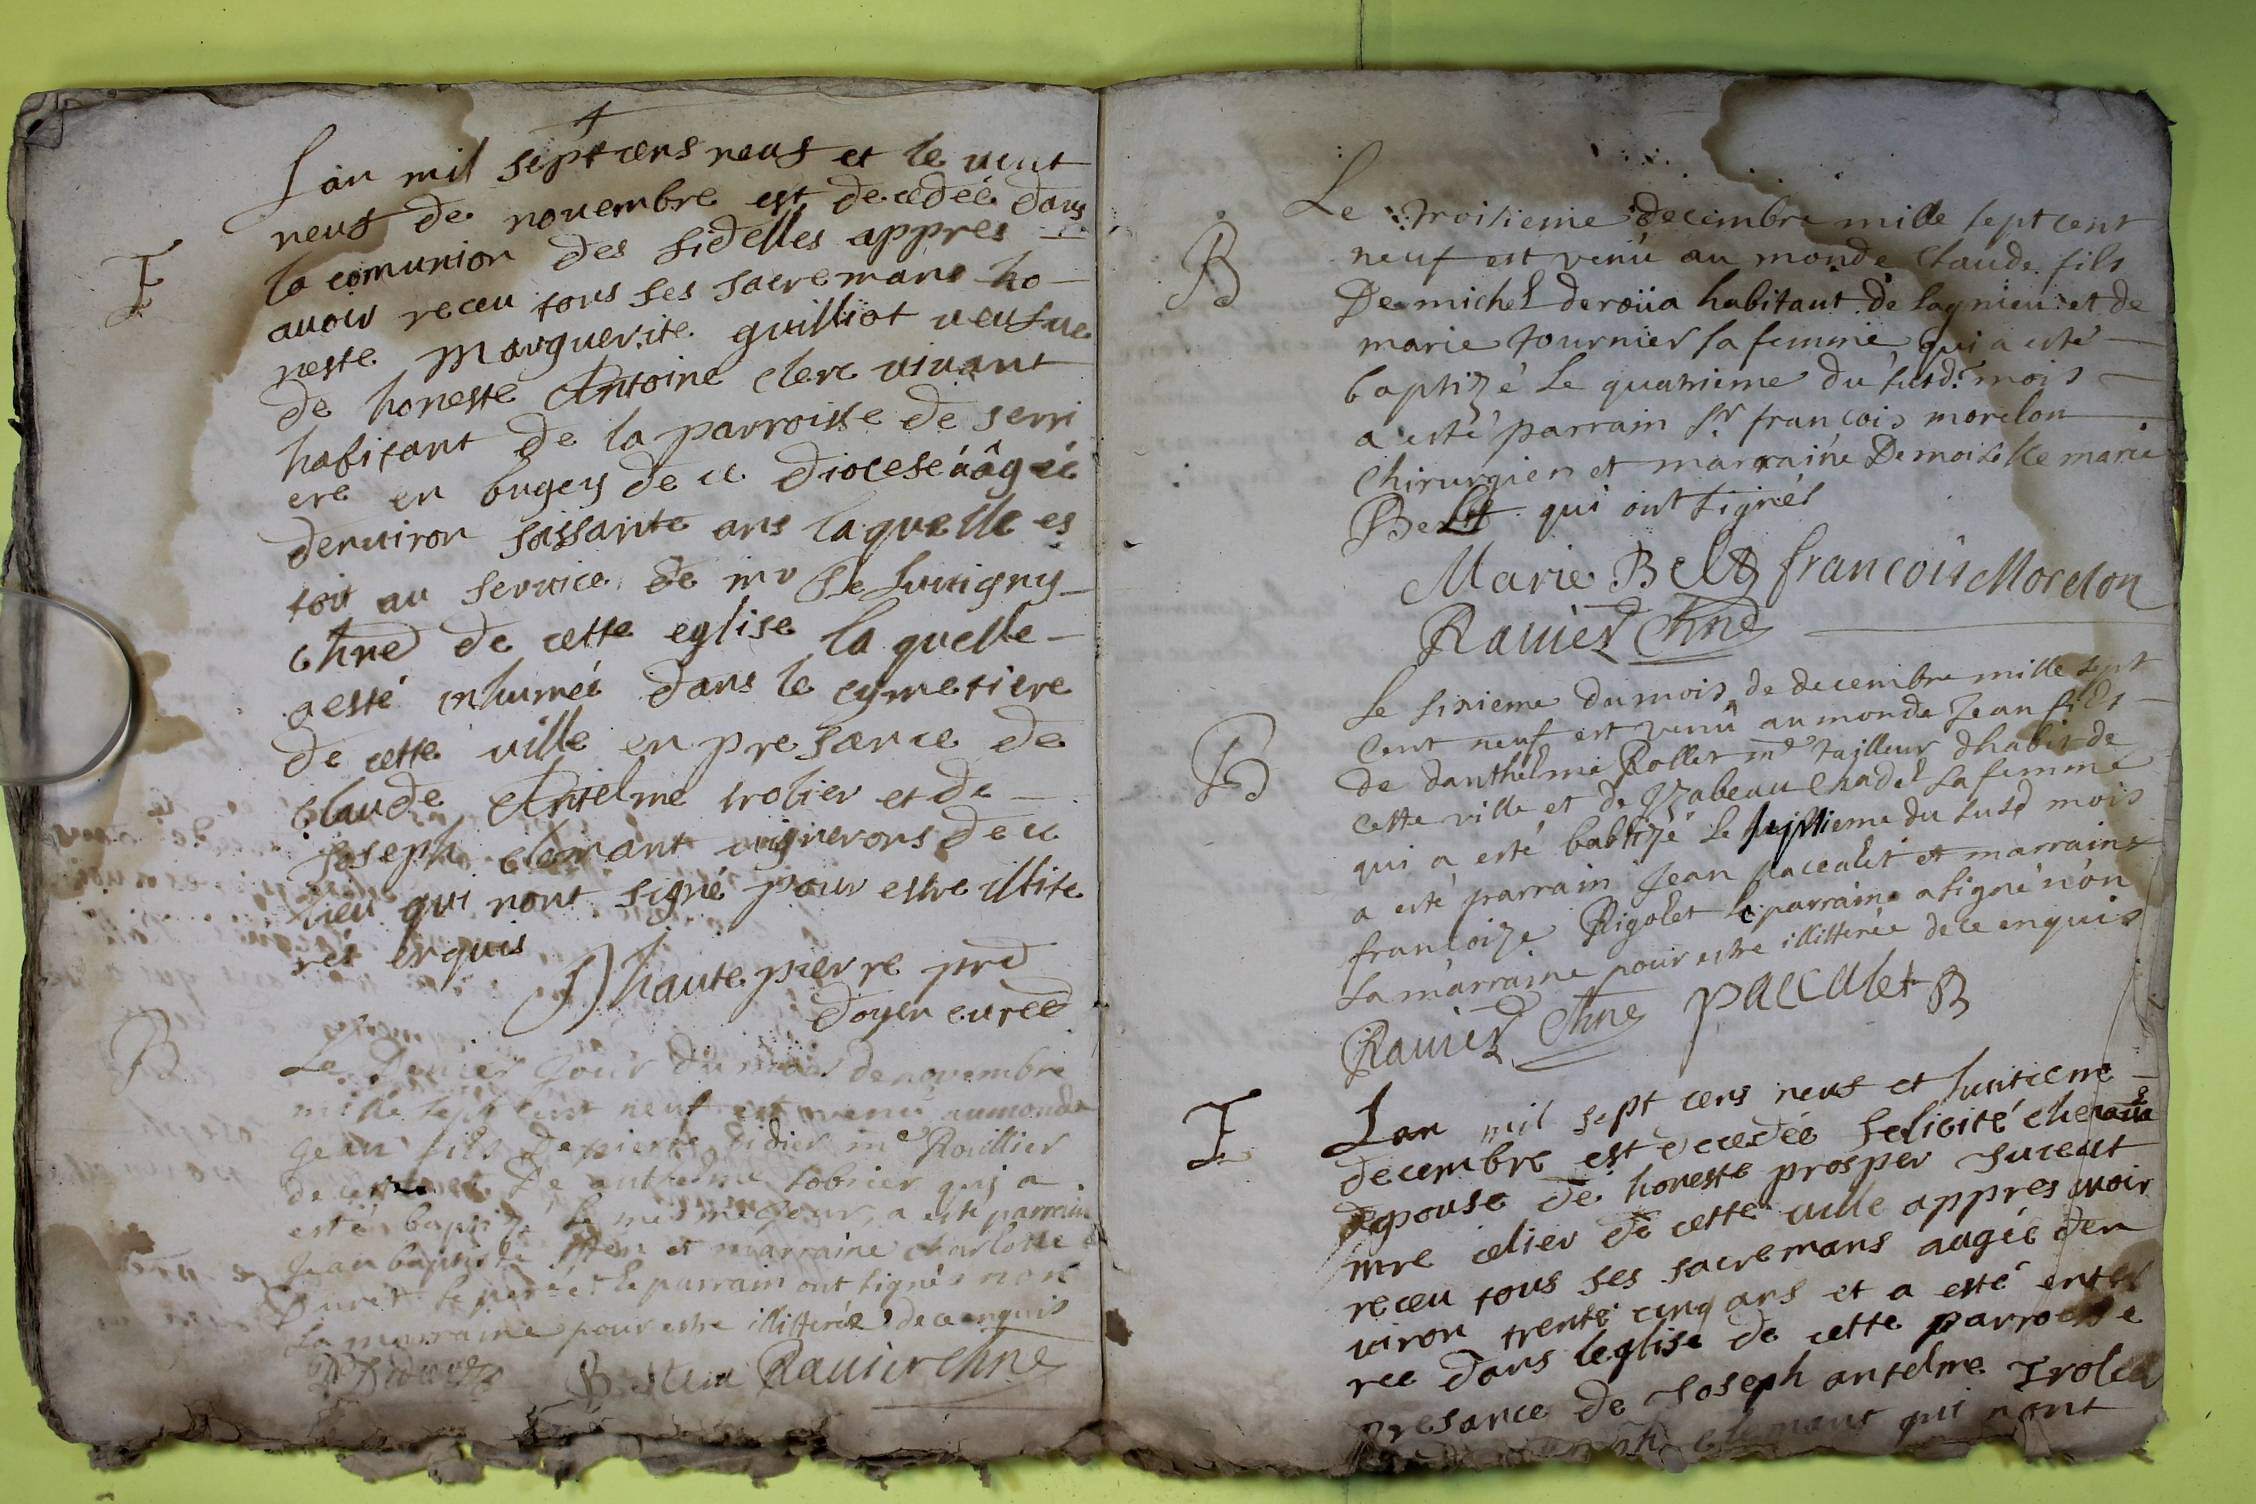 L'an mil septcens neuf et le vint
neuf de novembre est decedée dans
la comunion des fidelles appres
T
avoir receu tous ses sacremans ho-
neste Marguerite guilliot veufve
de honeste Antoine Clerc vivant
habitant de la parroisse de serri
ere en bugey de ce diocese aâgée
denviron soissante ans laquelle es
toit au service de mr de
chne de cette eglise laquelle
a esté inhumée dans le cymetiere
de cette ville en presance de
Claude Antelme trolier et de
Joseph clemant vignerons de ce
lieu qui nont signé pour estre illite
rés enquis
Dhautepierre prd
doyen curéd
B
Le Denier Jour du mois de novembre
mille sept cent neuf est venu au monde
Jean fils De pierre didier me Roullier
de De anthelme qui a
esté baptizé le mesme Jour, a esté parrain
Jean baptiste et marraine Charlotte
le pere et le parrain ont signés non
La marraine pour estre illitterée de ce enquis
Ravier Chne
Le troisieme decembre mille sept cent
B
neuf est venu au monde Claude fils
De michel deroüa habitant de lagnieu et de
marie tournier sa femme qui a esté
baptizé Le quatrieme du susd. mois
a esté parrain sr francois morelon
Chirurgien et marraine Demoiselle marie
Belt qui ont signés
Marie Belt francois Morelon
Ravier Chne
Le sixieme du mois de decembre mille sept
Cent neuf est venu au monde Jean fils
B
de danthelme Rollet me Tailleur dhabit de
cette ville et de Yzabeau Chadel sa femme
qui a esté babtizé Le septieme du susd mois
a esté parrain Jean paccalet et marraine
francoize Rigolet le parrain a signé non
La marraine pour estre illitterée de ce enquis
Ravier Chne paccalet
T
L'an mil sept cens neuf et huitieme
decembre est decedée felicité
epouse de honeste prosper
celier de cette ville appres avoir
receu tous ses sacremans aagée den
viron trente cinq ans et a esté enter
rée dans leglise de cette parroisse
presance de Joseph antelme Trolier
clemant qui nont